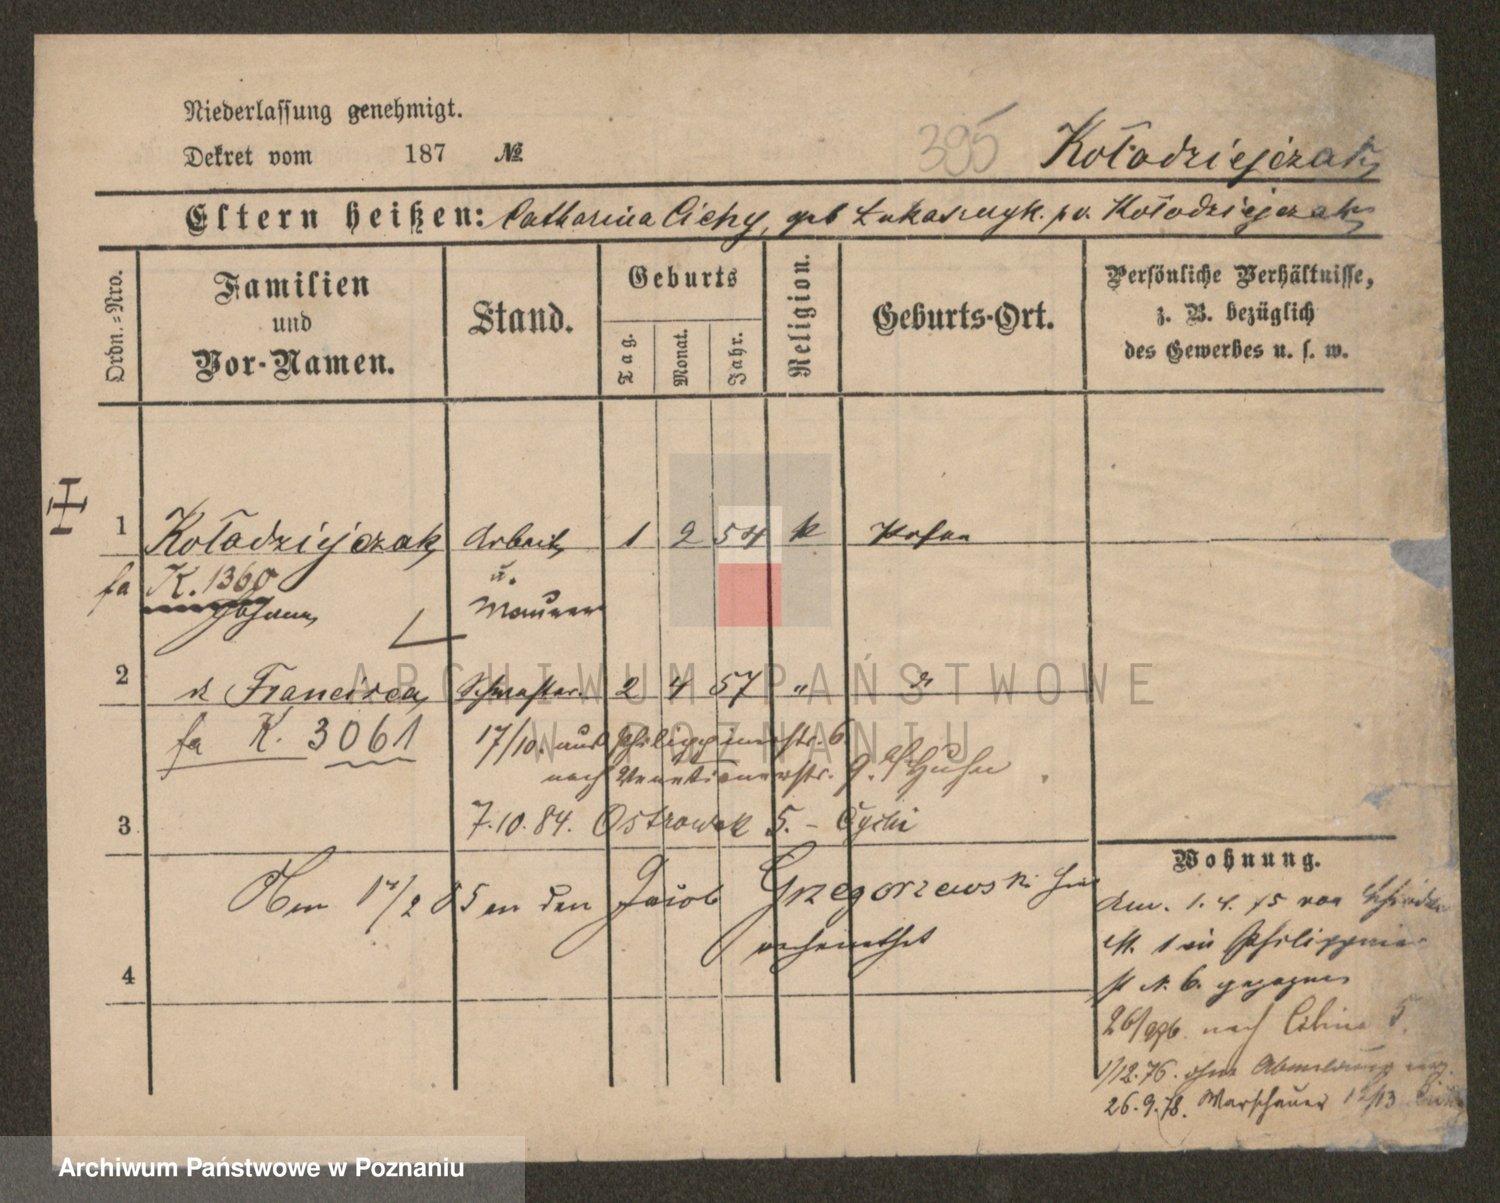 Niederlassung genehmigt.
Dekret vom 187 №
395 Kołodziejczak
Eltern heißen: Catharina Cichy, geb Łukaszczyk. pv. Kołodziejczak
Ordn.-Nro.
Familien
und
Vor-Namen.
Stand.
Geburts
Tag.
Monat.
Jahr.
Religion.
Geburts-Ort.
Persönliche Verhältnisse,
z. B. bezüglich
des Gewerbes u. s. w.
1 Kołodziejczak Arbeit 1 2 54 k Posen
fa K. 1360 u.
Johann Maurer
2 d Francisca Schwester 2 4 57 " d
fa K. 3061 17/10. aus Philippinerstr. 6
nach Venetianerstr. 9.
3 7.10.84. Ostrowek 5. –
Am 17/2 85 an den Jacob Grzegorzewski
verheirathet
4
Wohnung.
1. 4. 75 von
N. 1 in Philippiner
st N. 6. gezogen
nach 5.
1/12.76. ohne Abmeldung
26.9.78. Warschauer 12/13
ARCHIWUM PAŃSTWOWE
W POZNANIU
Archiwum Państwowe w Poznaniu